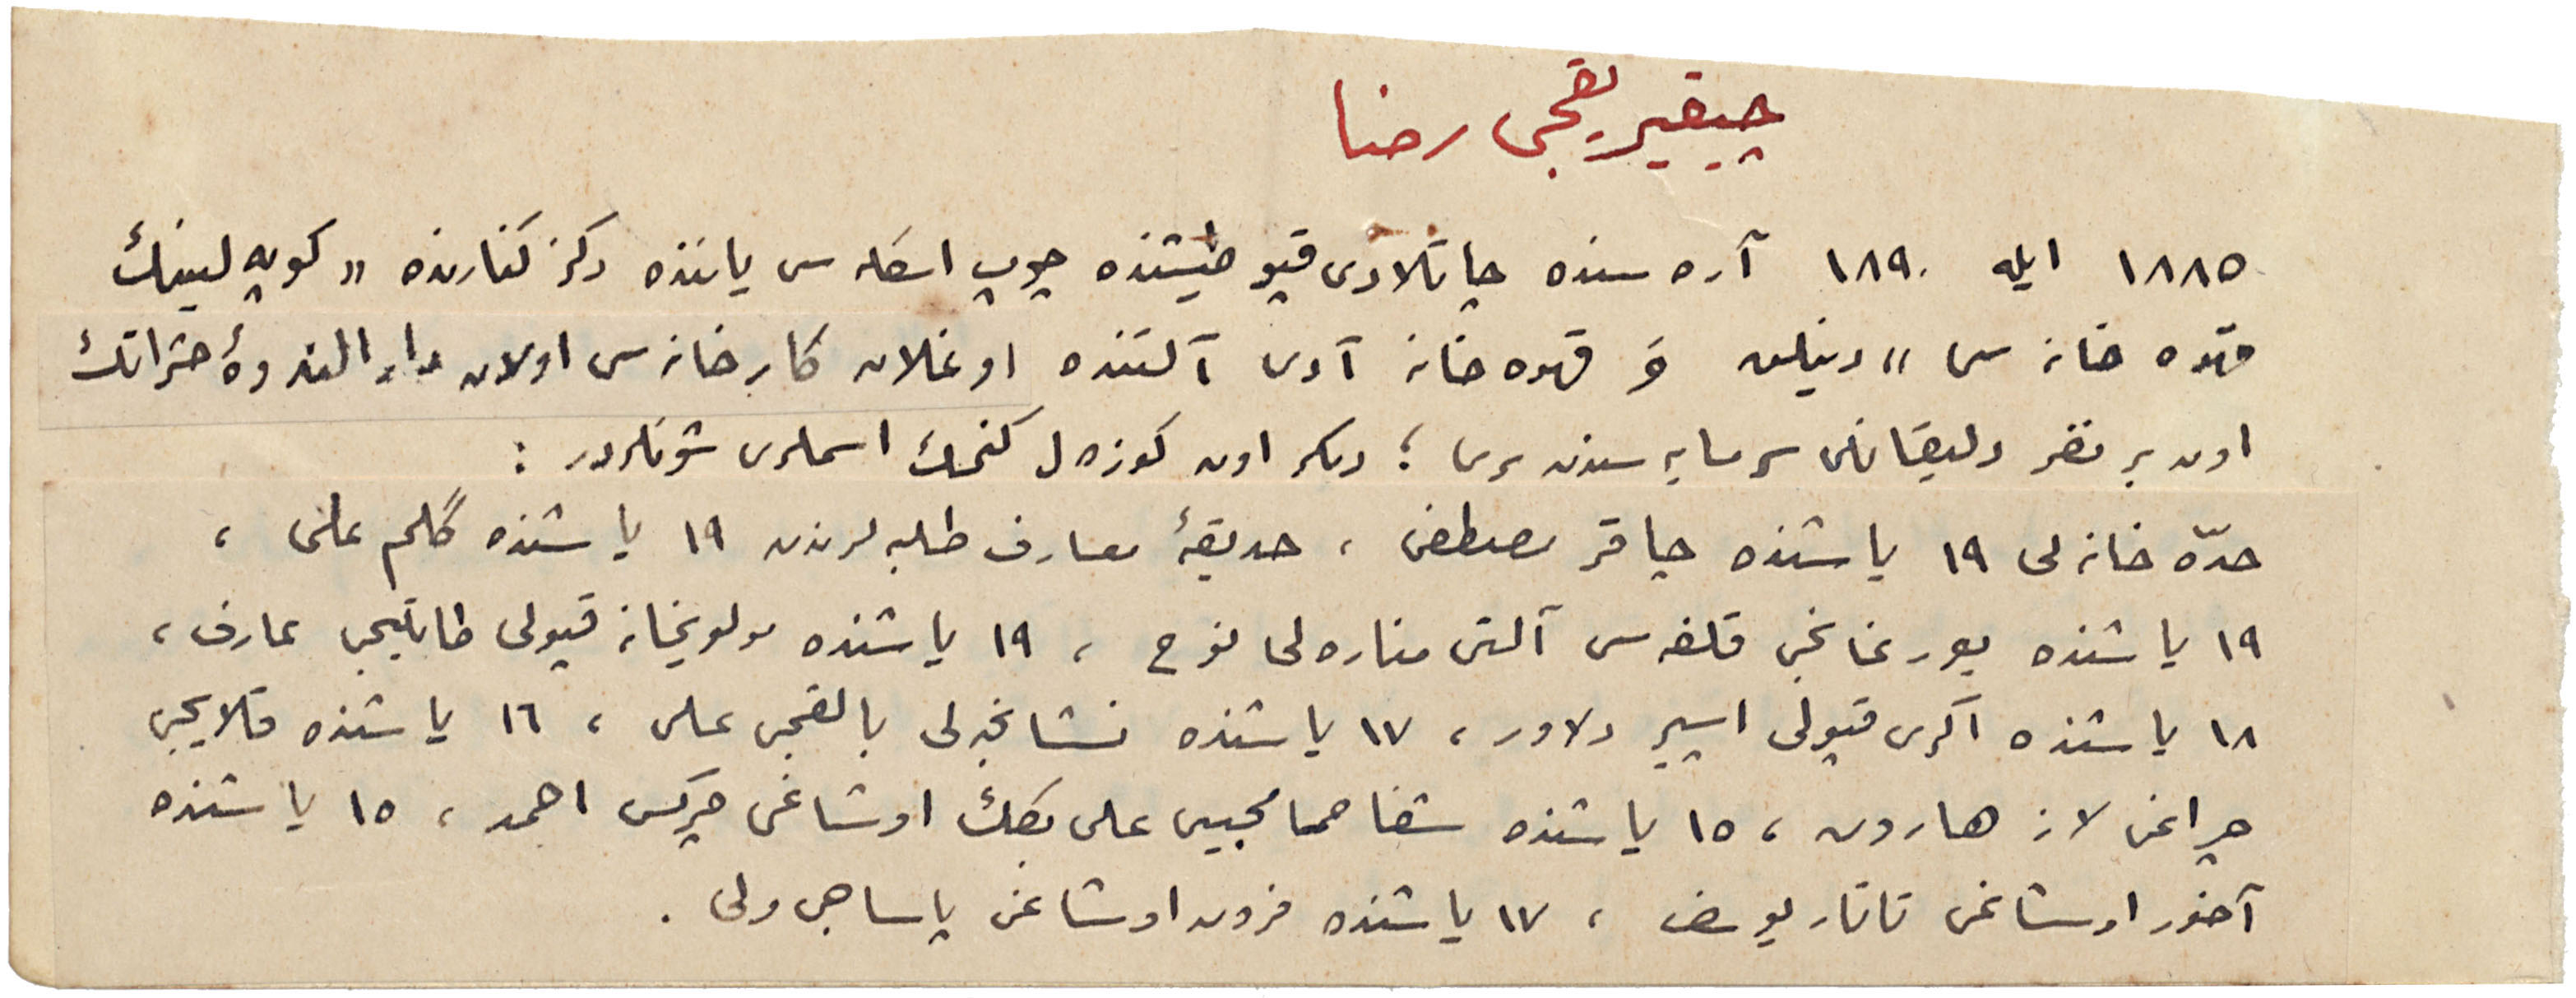 چیقیریقجی رضا
١٨٨٥ ایله ١٨٩٠ آره سنده چاتلادی قپو طیشنده چوپ اسکله سی یاننده دكز كنارنده «كوپه لینك
قهوه خانه سی» دینیلن و قهوه خانه آدی آلتنده اوغلان كارخانه سی اولان دار الندوۀ حشراتك
اون بر نفر دلیقانلی سرمایه سندن بری ؛ دیكر اون كوزەل كنجك اسملری شونلردر :
حدّه خانه لی ١٩ یاشنده چاقر مصطفی ، حدیقۀ معارف طلبه لرندن ١٩ یاشنده گلم علی ،
١٩ یاشنده یورغانجی قلفه سی آلتی مناره لی نوح ، ١٩ یاشنده مولویخانه قپولی طاتلیجی عارف ،
١٨ یاشنده اكری قپولی اسپیر دلاور ، ١٧ یاشنده نشانجه لی بالقجی علی ، ١٦ یاشنده قلایجی
چراغی لاز هارون ، ١٥ یاشنده شفا حمامجیسی علی بكك اوشاغی چركس احمد ، ١٥ یاشنده
آخور اوشاغی تاتار یوسف ، ١٧ یاشنده فرون اوشاغی پاساجی ولی .